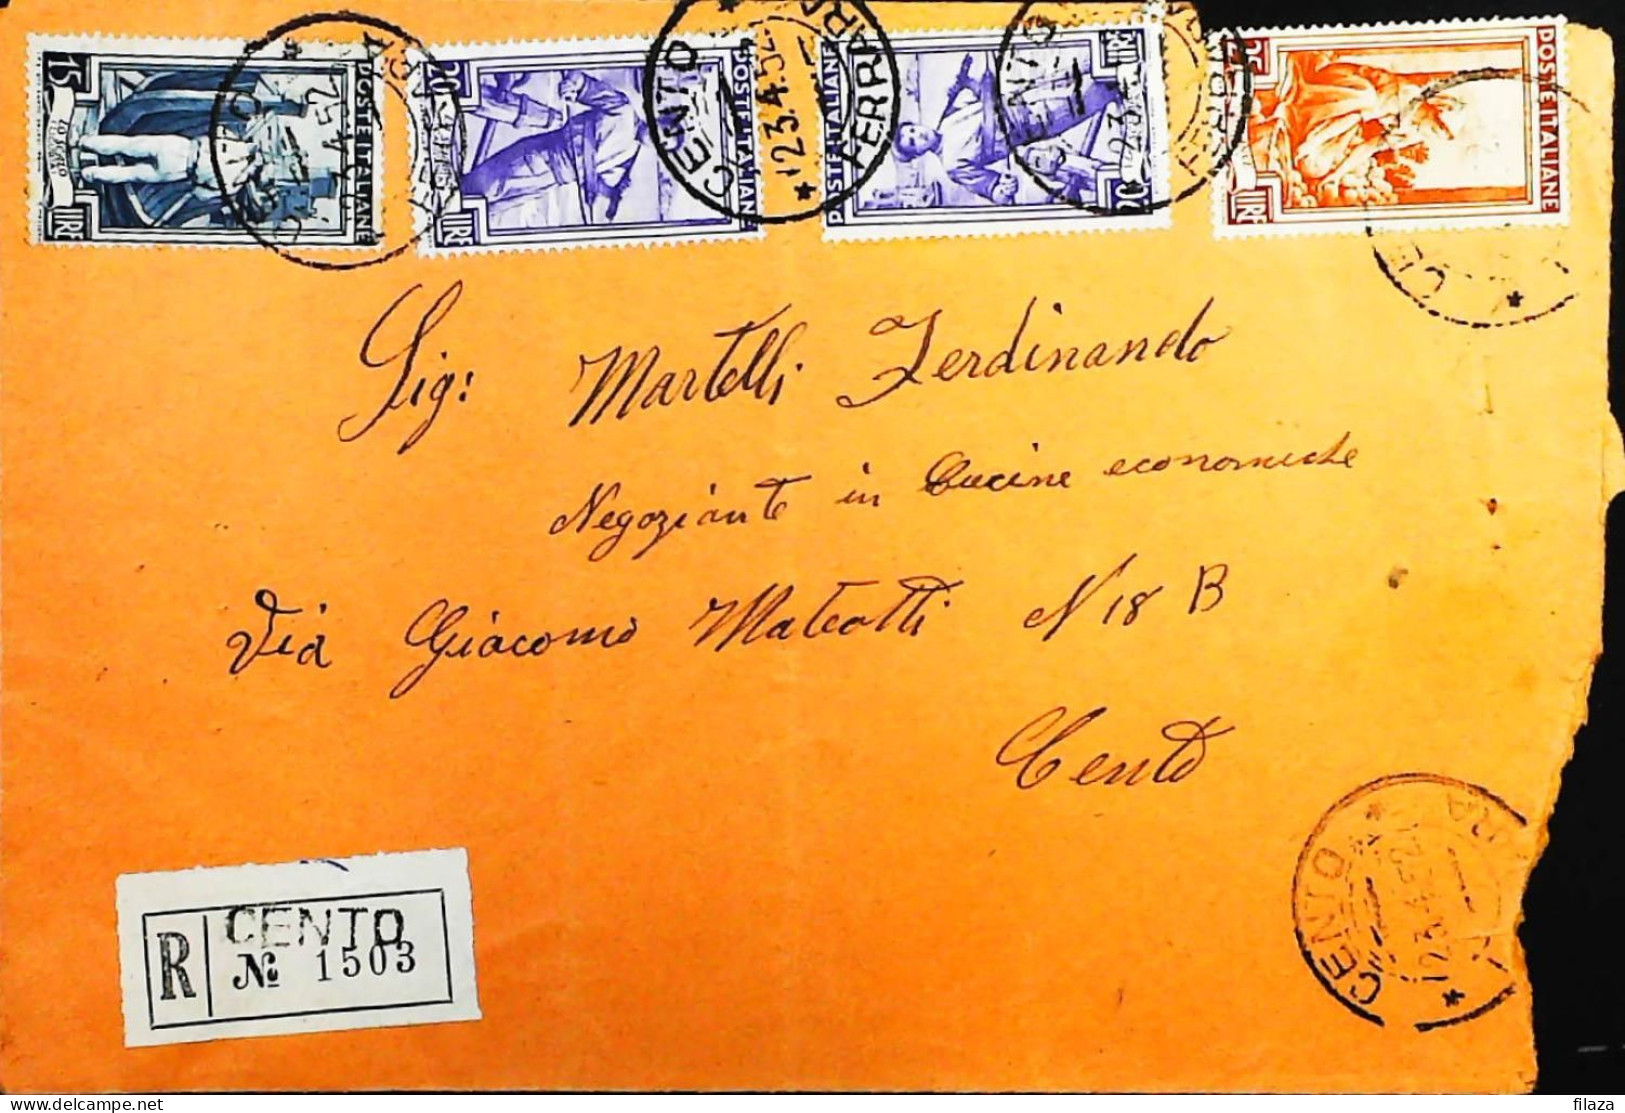 15 LIRE POSTE ITALIANE
20 LIRE POSTE ITALIANE
20 POSTE ITALIANE
25 LIRE POSTE ITALIANE
CENTO 23.4.52 FERRARA
Sig: Martelli Ferdinando
Negoziante in Cucine economiche
Via Giacomo Mateotti N 18 B
Cento
CENTO 23.4.52
R CENTO
№ 1503
filaza